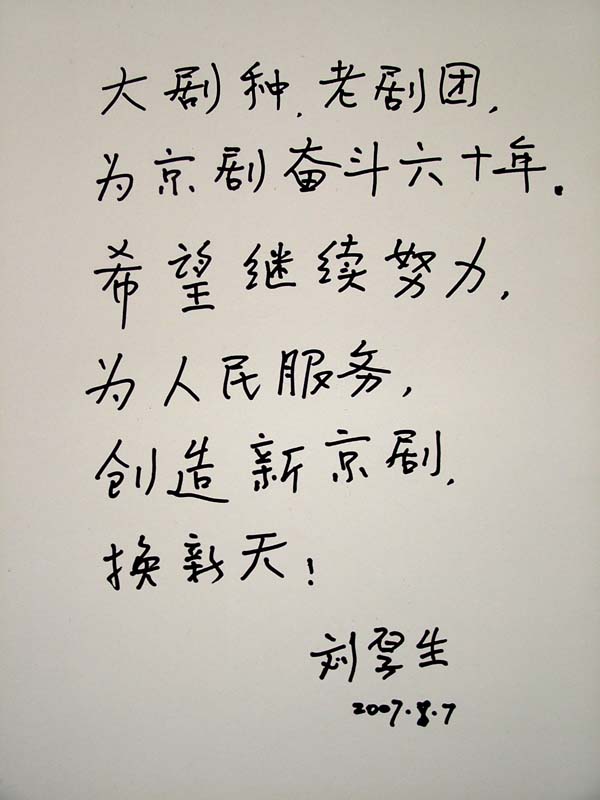 大剧种,老剧团,
为京剧奋斗六十年.
希望继续努力,
为人民服务,
创造新京剧,
换新天!
刘厚生
2007.8.7